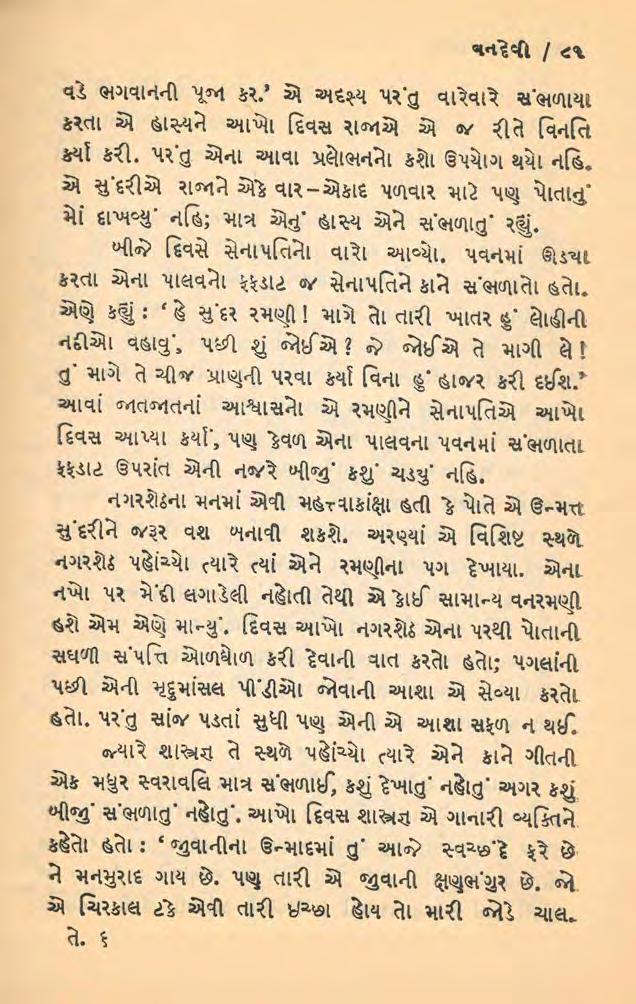 વનદેવી / ૮૧
વડે ભગવાનની પૂજા કર.’ એ અદૃશ્ય પરંતુ વારેવારે સંભળાયા
કરતા એ હાસ્યને આખો દિવસ રાજાએ એ જ રીતે વિનતિ
કર્યા કરી. પરંતુ એના આવા પ્રલોભનનો કશો ઉપયોગ થયો નહિ.
એ સુંદરીએ રાજાને એકે વાર–એકાદ પળવાર માટે પણ પોતાનું
મોં દાખવ્યું નહિ; માત્ર એનું હાસ્ય એને સંભળાતું રહ્યું.
બીજે દિવસે સેનાપતિનો વારો આવ્યો. પવનમાં ઊડ્યા
કરતા એના પાલવનો ફફડાટ જ સેનાપતિને કાને સંભળાતો હતો.
એણે કહ્યું : ‘હે સુંદર રમણી! માગે તો તારી ખાતર હું લોહીની
નદીઓ વહાવું, પછી શું જોઈએ? જે જોઈએ તે માગી લે!
તું માગે તે ચીજ પ્રાણની પરવા કર્યા વિના હું હાજર કરી દઈશ.’
આવાં જાતજાતનાં આશ્વાસનો એ રમણીને સેનાપતિએ આખો
દિવસ આપ્યા કર્યાં, પણ કેવળ એના પાલવના પવનમાં સંભળાતા
ફફડાટ ઉપરાંત એની નજરે બીજું કશું ચડ્યું નહિ.
નગરશેઠના મનમાં એવી મહત્ત્વાકાંક્ષા હતી કે પોતે એ ઉન્મત્ત
સુંદરીને જરૂર વશ બનાવી શકશે. અરણ્યાં એ વિશિષ્ટ સ્થળે
નગરશેઠ પહોંચ્યો ત્યારે ત્યાં એને રમણીના પગ દેખાયા. એના
નખો પર મેંદી લગાડેલી નહોતી તેથી એ કોઈ સામાન્ય વનરમણી
હશે એમ એણે માન્યું. દિવસ આખો નગરશેઠ એના પરથી પોતાની
સઘળી સંપત્તિ ઓળઘોળ કરી દેવાની વાત કરતો હતો; પગલાંની
પછી એની મૃદુમાંસલ પીંડીઓ જોવાની આશા એ સેવ્યા કરતો
હતો. પરંતુ સાંજ પડતાં સુધી પણ એની એ આશા સફળ ન થઈ.
જ્યારે શાસ્ત્રજ્ઞ તે સ્થળે પહોંચ્યો ત્યારે એને કાને ગીતની
એક મધુર સ્વરાવલિ માત્ર સંભળાઈ, કશું દેખાતું નહોતું અગર કશું
બીજું સંભળાતું નહોતું. આખો દિવસ શાસ્ત્રજ્ઞ એ ગાનારી વ્યક્તિને
કહેતો હતો : ‘જુવાનીના ઉન્માદમાં તું આજે સ્વચ્છંદે ફરે છે
ને મનમુરાદ ગાય છે. પણ તારી એ જુવાની ક્ષણભંગુર છે. જો
એ ચિરકાલ ટકે એવી તારી ઇચ્છા હોય તો મારી જોડે ચાલ.
તે. ૬